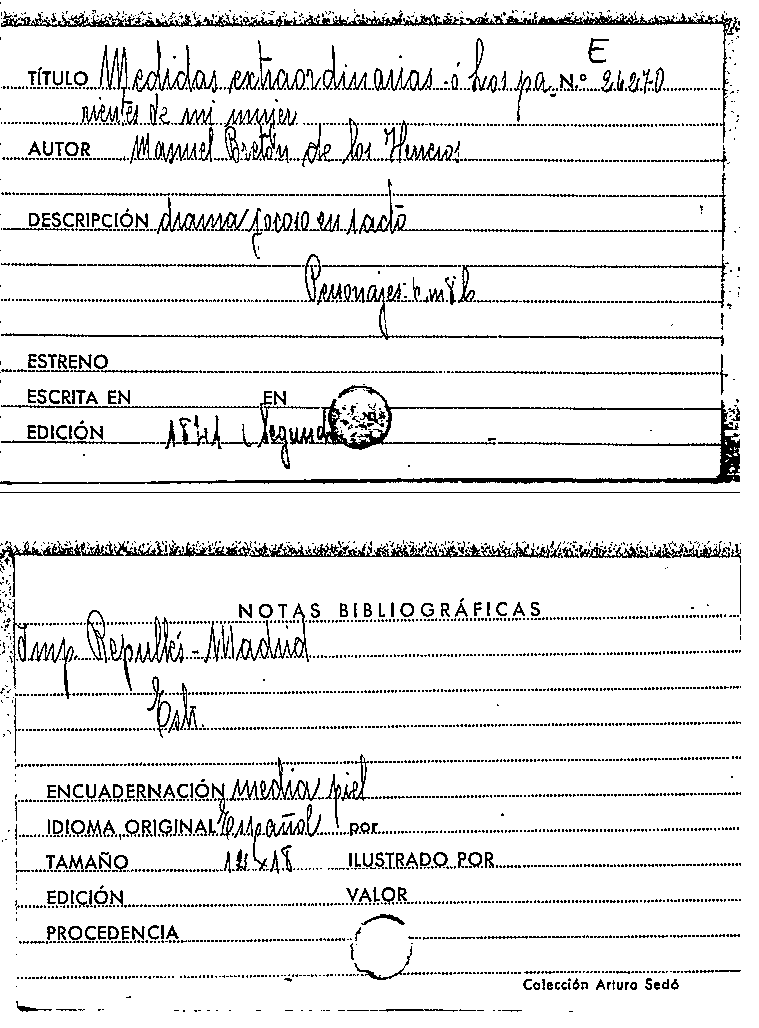 E
TÍTULO Medidas extraordinarias ó Los pa N.º 26270
rientes de mi mujer
AUTOR Manuel Bretón de los Herreros
DESCRIPCIÓN drama jocoso en 1 acto
Personajes
ESTRENO
ESCRITA EN EN
EDICIÓN Segunda
NOTAS BIBLIOGRÁFICAS
Imp. Repullés - Madrid
ENCUADERNACIÓN media piel
IDIOMA ORIGINAL Español por
TAMAÑO ILUSTRADO POR
EDICIÓN VALOR
PROCEDENCIA
Colección Arturo Sedó